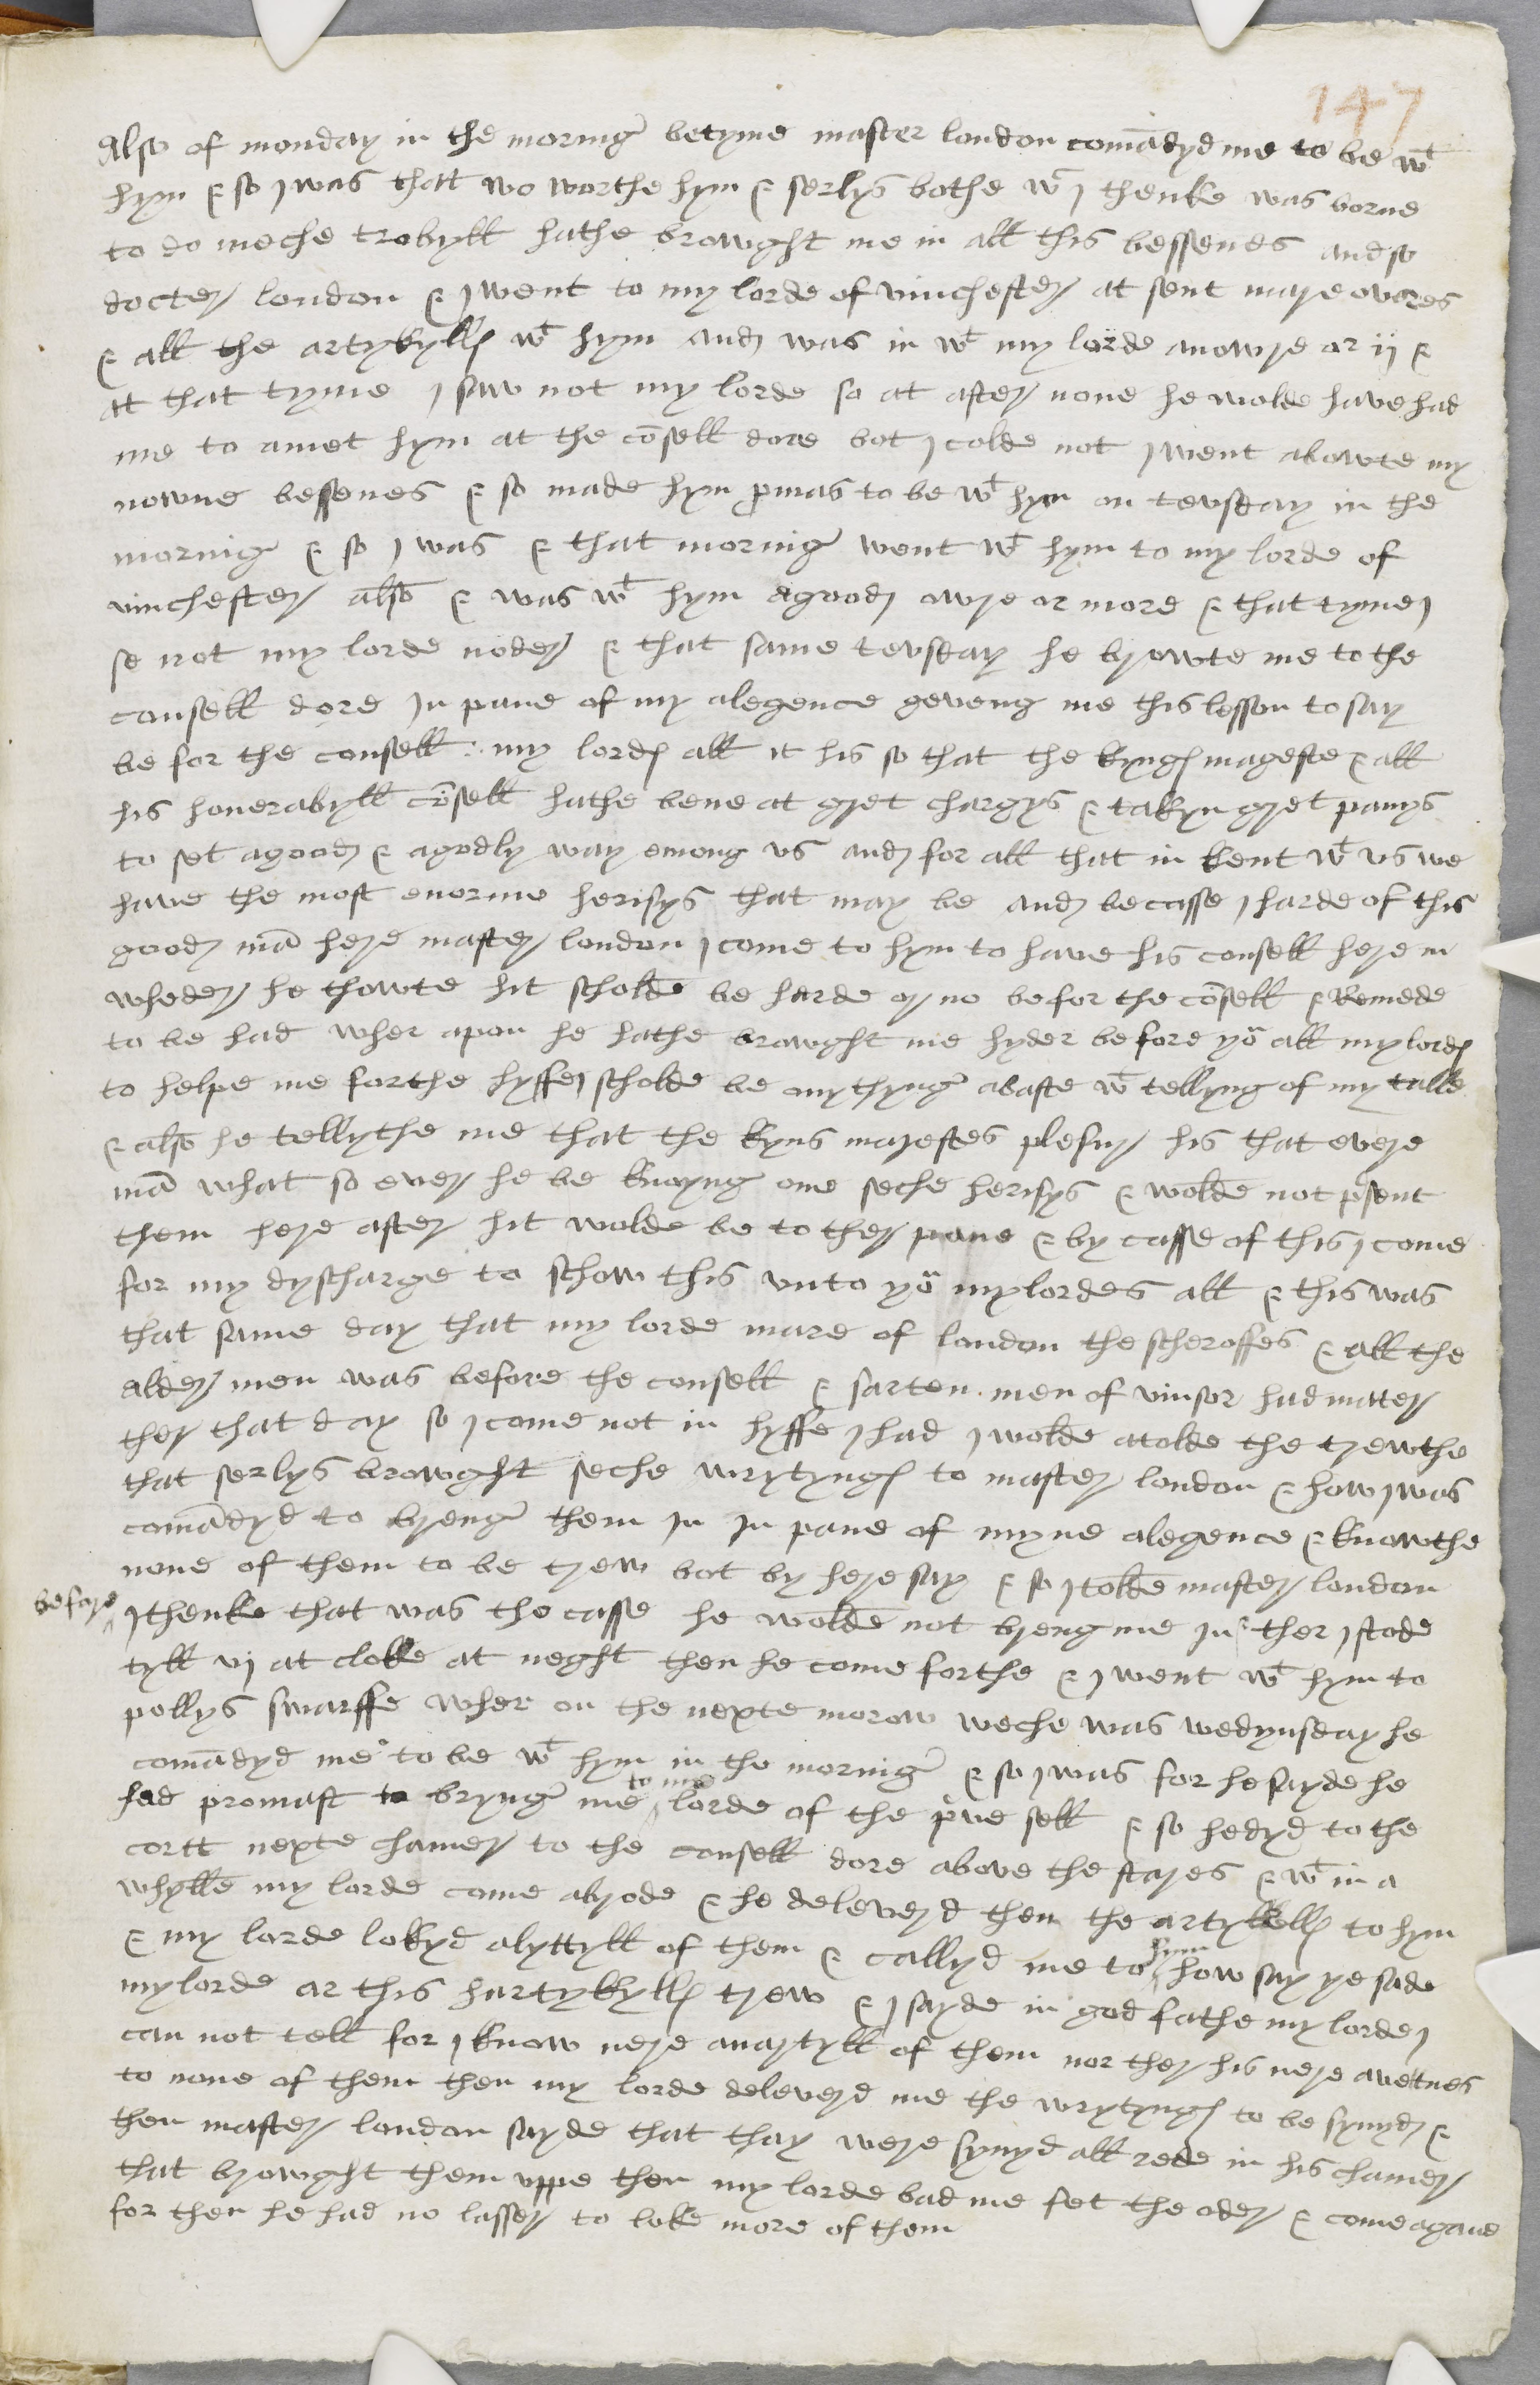 147
Also of monday in the morning betyme master london comādyd me to be wt
hym & so j was that wo worthe hym & serlys bothe wc j thenke was borne
to do meche trobyll hathe browght me in all this bessenes and so
docter london & j went to my lorde of vinchester at sent marye overes
& all the artykylles wt hym and was in wt my lorde an owre or ij &
at that tyme j saw not my lorde so at after none he wolde have had
me to amet hym at the cōsell dore bot j colde not j went abowte my
nowne bessenes & so made hym promas to be wt hym on tevsday in the
morning & so j was & that morning went wt hym to my lorde of
vinchester also & was wt hym a good owre or more & that tyme j
se not my lorde noder & that same tevsday he browte me to the
consell dore Jn pane of my alegence geveng me this lesson to say
be for the consell : my lordes all it his so that the kynges mageste & all
his honerabyll cōsell hathe bene at gret chargys & takyn gret panys
to set a good & a godly way emong vs and for all that in kent wt vs we
have the most enorme herisys that may be and be casse j harde of this
good mā here master london j come to hym to have his consell here in
wheder he thowte hit scholde be harde or no be for the cōsell & Remede
to be had wher apon he hathe browght me hyder before yow all my lordes
to helpe me forthe hyffe j scholde be any thyng abaste wt tellyng of my talle
& also he tellythe me that the kyns majestes plesur his that evere
mā what so ever he be knoyng one seche herisys & wolde not psent
them here after hit wolde be to ther pane & by casse of this j come
for my dyscharge to schow this vnto yow my lordes all & this was
that same day that my lorde mare of london the scheroffes & all the
alder men was before the consell & sarten men of vinsor had matter
ther that day so j come not in hyffe j had j wolde a tolde the trewthe
that serlys browght seche wrytynges to master london & how j was
comādyd to breng them in Jn pane of myne alegence & knowthe
none of them to be trew bot by here say & so j tolde master london
before j thenke that was the casse he wolde not breng me Jn : ther j stode
tyll vj at cloke at neght then he come forthe & j went wt hym to
pollys swarffe wher on the nexte morow weche was wedynsday he
comādyd me to be wt hym in the morning & so j was for he sayde he
had promast to bryng me to my lorde of the prve sell & so he dyd to the
cortt nexte chamer to the consell dore above the stares & wt in a
whylle my lorde come abrode & he deleveryd then the artykelles to hym
& my lorde lokyd a lyttyll of them & callyd me to hym how say ye sade
my lorde ar this hartykylles trew & j sayde in god fathe my lorde j
can not tell for j know nere an artyll of them nor ther his nere a wettnes
to none of them then my lorde deleverd me the wrytynges to be synyd &
then master london sayde that thay were synyd all rede in his chamer
that browght them vppe then my lorde bad me fet the oder & come agane
for then he had no lasser to loke more of them